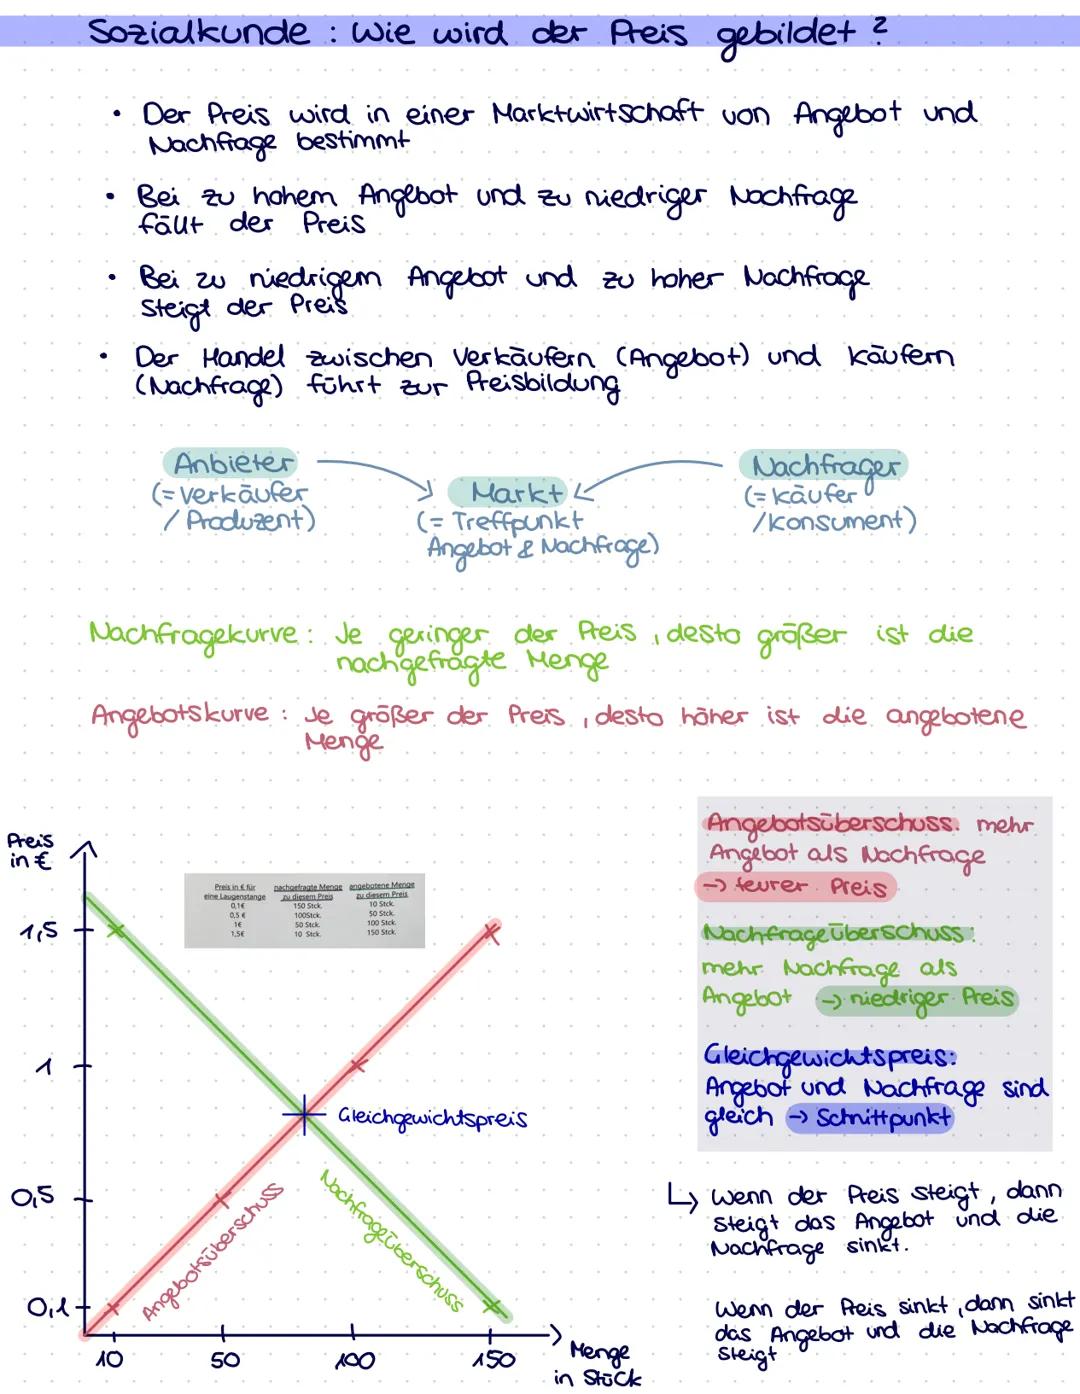 Sozialkunde : Wie wird der Preis gebildet ?
• Der Preis wird in einer Marktwirtschaft von Angebot und
Nachfrage bestimmt
• Bei zu hohem Angebot und zu niedriger Nachfrage
fällt der Preis
• Bei zu niedrigem Angebot und zu hoher Nachfrage
steigt der Preis
• Der Handel zwischen Verkäufern (Angebot) und Käufern
(Nachfrage) führt zur Preisbildung
Anbieter
(= Verkäufer
/ Produzent)
Markt
(= Treffpunkt
Angebot & Nachfrage)
Nachfrager
(= Käufer
/Konsument)
Nachfragekurve : Je geringer der Preis , desto größer ist die
nachgefragte Menge
Angebotskurve : Je größer der Preis , desto höher ist die angebotene
Menge
Preis
in €
1,5
1
0,5
0,1
10 50 100 150
Menge
in Stück
Preis in € für nachgefragte Menge angebotene Menge
eine Laugenstange zu diesem Preis zu diesem Preis
0,1€ 150 Stck. 10 Stck.
0,5 € 100Stck. 50 Stck.
1€ 50 Stck. 100 Stck.
1,5€ 10 Stck. 150 Stck.
Gleichgewichtspreis
Angebotsüberschuss
Nachfrageüberschuss
Angebotsüberschuss: mehr
Angebot als Nachfrage
→ teurer Preis
Nachfrageüberschuss:
mehr Nachfrage als
Angebot → niedriger Preis
Gleichgewichtspreis:
Angebot und Nachfrage sind
gleich → Schnittpunkt
↳ Wenn der Preis steigt , dann
steigt das Angebot und die
Nachfrage sinkt.
Wenn der Preis sinkt , dann sinkt
das Angebot und die Nachfrage
steigt